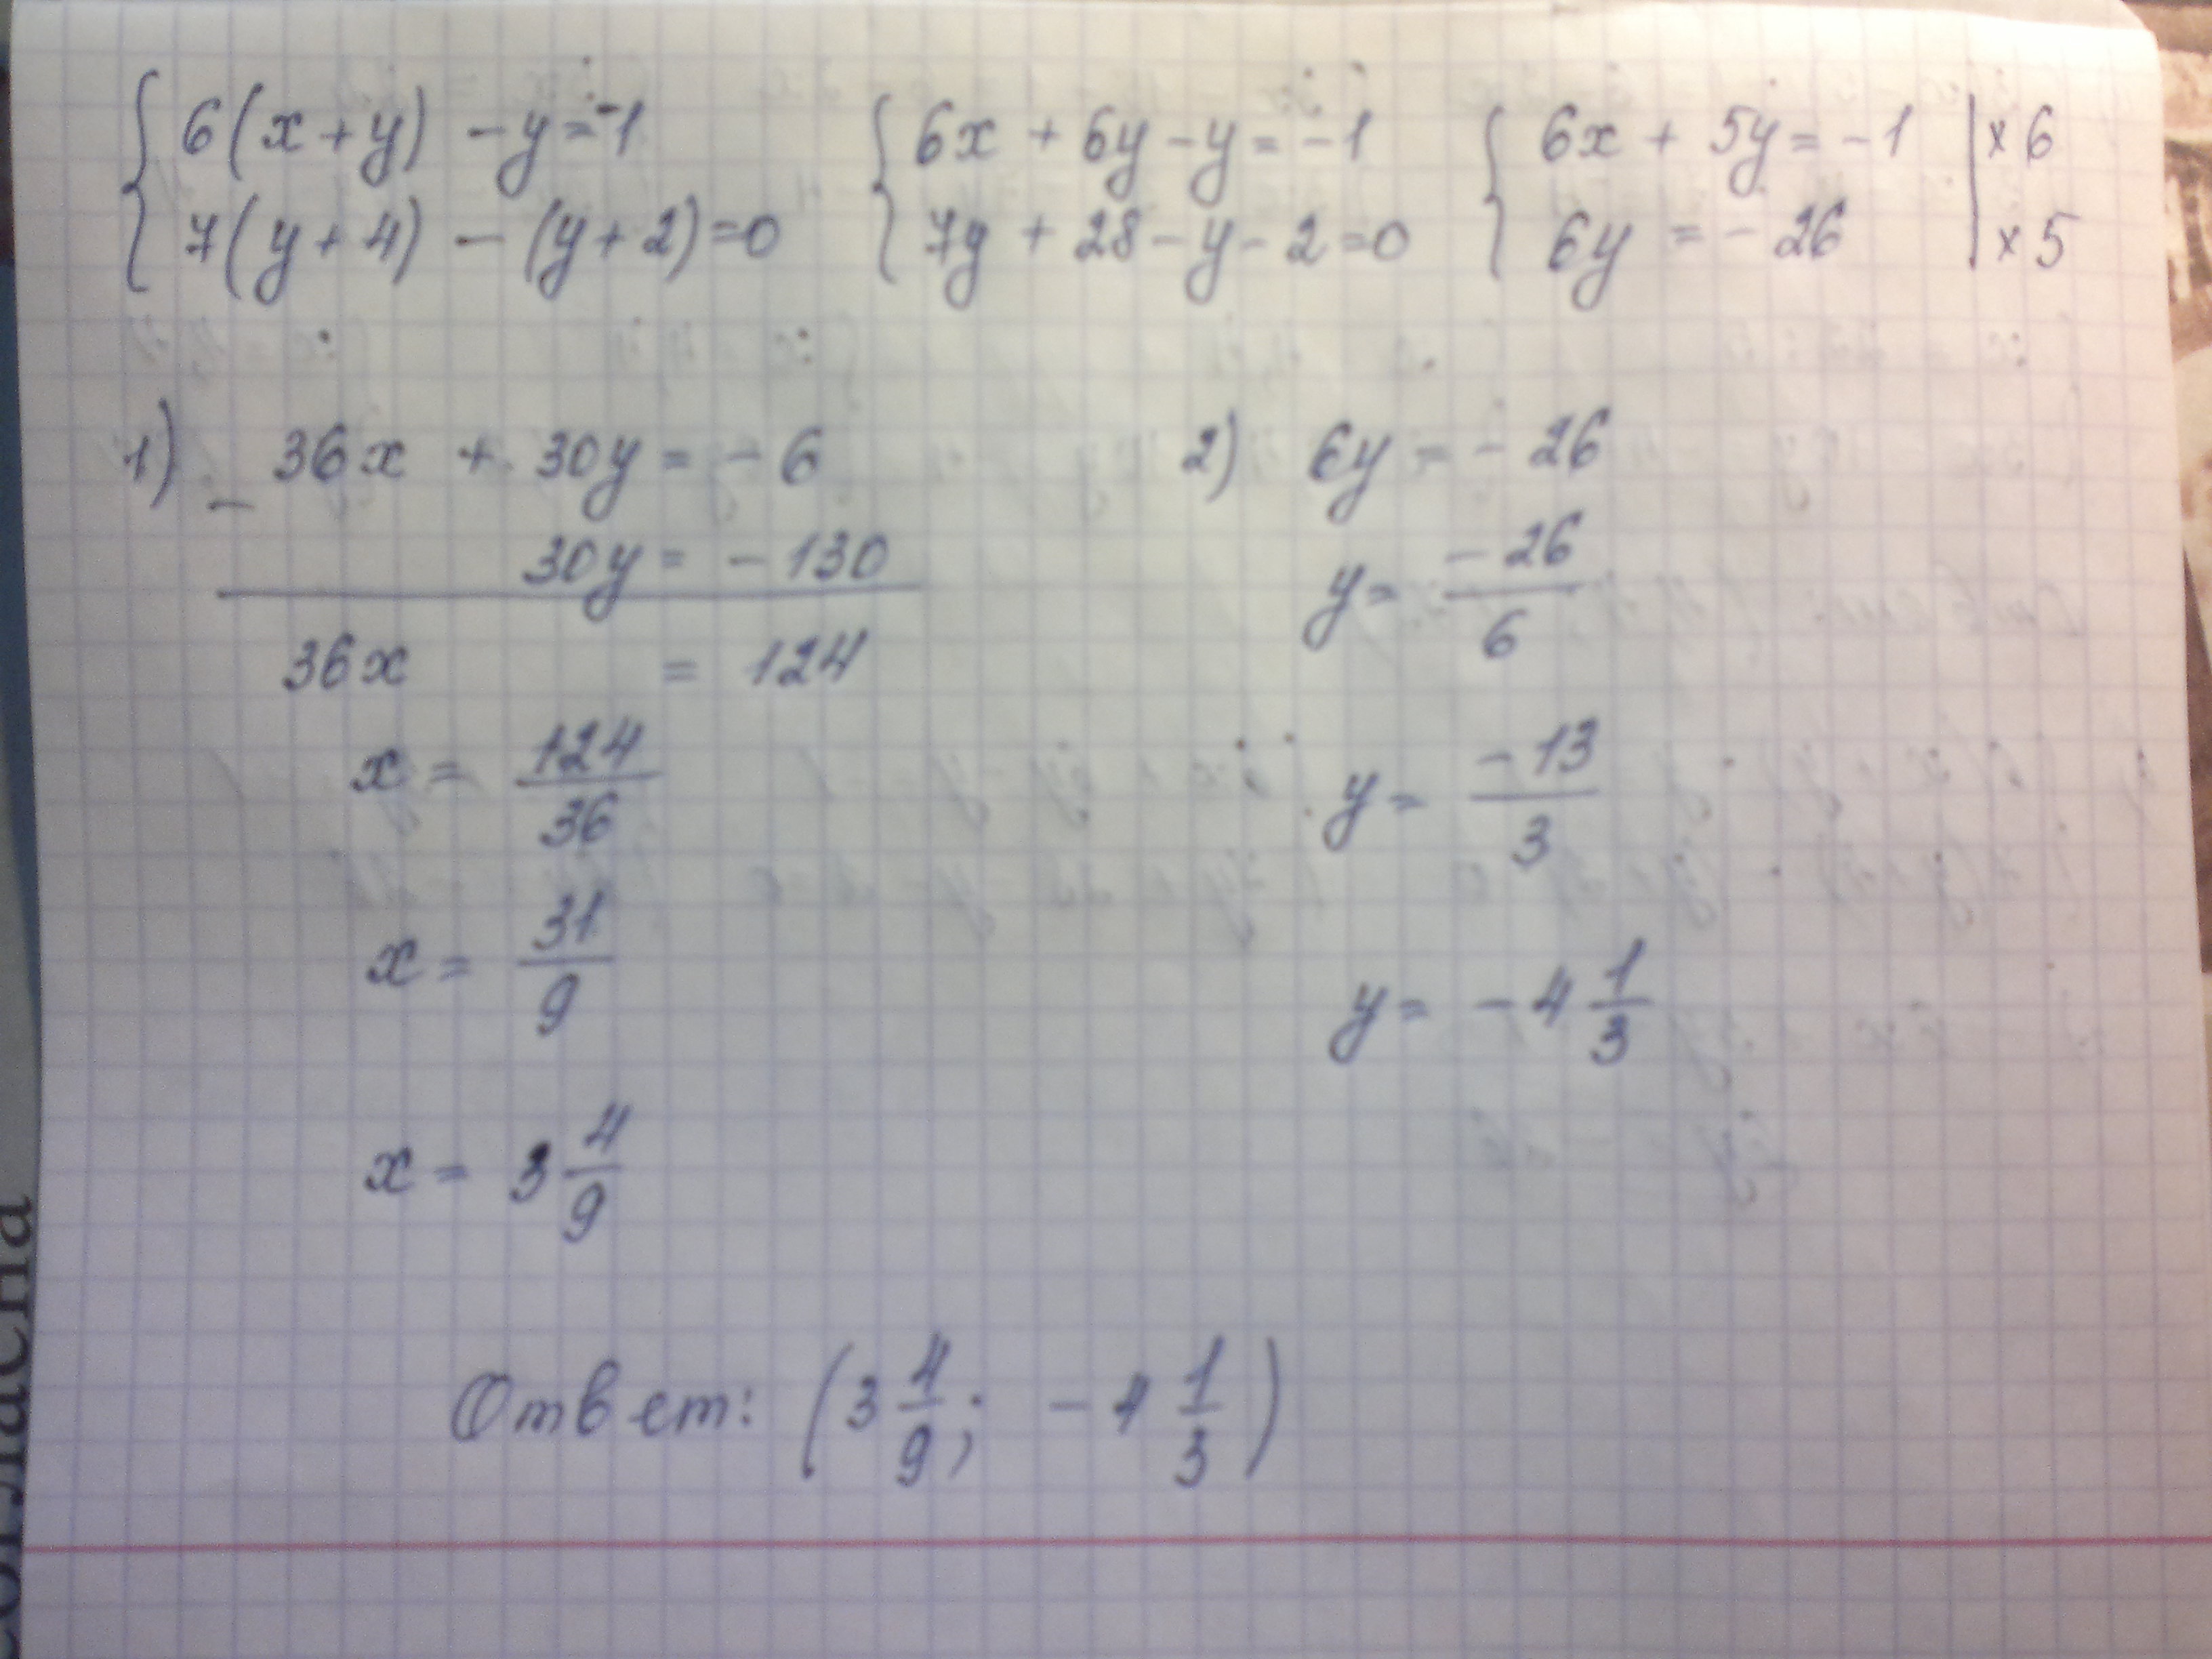 6(x+y) -y=-1
7(y+4) - (y+2)=0
6x + 6y -y = -1
7y + 28 -y - 2 =0
6x + 5y = -1 | ×6
6y = -26 | ×5
1) _ 36x + 30y = -6
30y = -130
36x = 124
x = 124/36
x = 31/9
x = 3 4/9
2) 6y = -26
y = -26/6
y = -13/3
y = -4 1/3
Ответ: (3 4/9; -4 1/3)